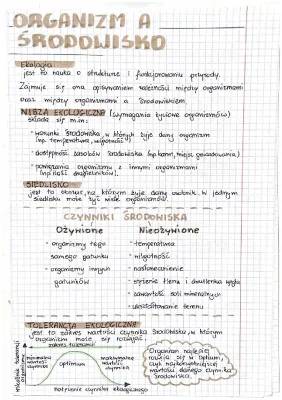 ORGANIZM A
ŚRODOWISKO
Ekologia
jest to nauka o strukturze i funkcjonowaniu przyrody.
Zajmuje się ona opisywaniem zależności między organizmami
oraz między organizmami a środowiskiem.
NISZA EKOLOGICZNA (wymagania życiowe organizmów)
składa się m.in:
- warunki środowiska, w których żyje dany organizm
(np. temperatura, wilgotność)
- dostępność zasobów środowiska (np. karm, miejsc gniazdowania)
- powiązania organizmu z innymi organizmami
(np. ilość drapieżników).
SIEDLISKO
jest to obszar, na którym żyje dany osobnik. W jednym
siedlisku może żyć wiele organizmów.
CZYNNIKI ŚRODOWISKA
Ożywione
Nieożywione
- organizmy tego
samego gatunku
- organizmy innych
gatunków
- temperatura
- wilgotność
- nasłonecznienie
- stężenie tlenu i dwutlenku węgla
- zawartość soli mineralnych
- ukształtowanie terenu
TOLERANCJA EKOLOGICZNA
jest to zakres wartości czynnika środowiska, w którym
organizm może się rozwijać.
zakres tolerancji
minimalna
wartość
czynnika
optimum
maksymalna
wartość
czynnika
natężenie czynnika ekologicznego
Organizm najlepiej
rozwija się w optimum,
czyli najkorzystniejszej
wartości danego czynnika
środowiska.